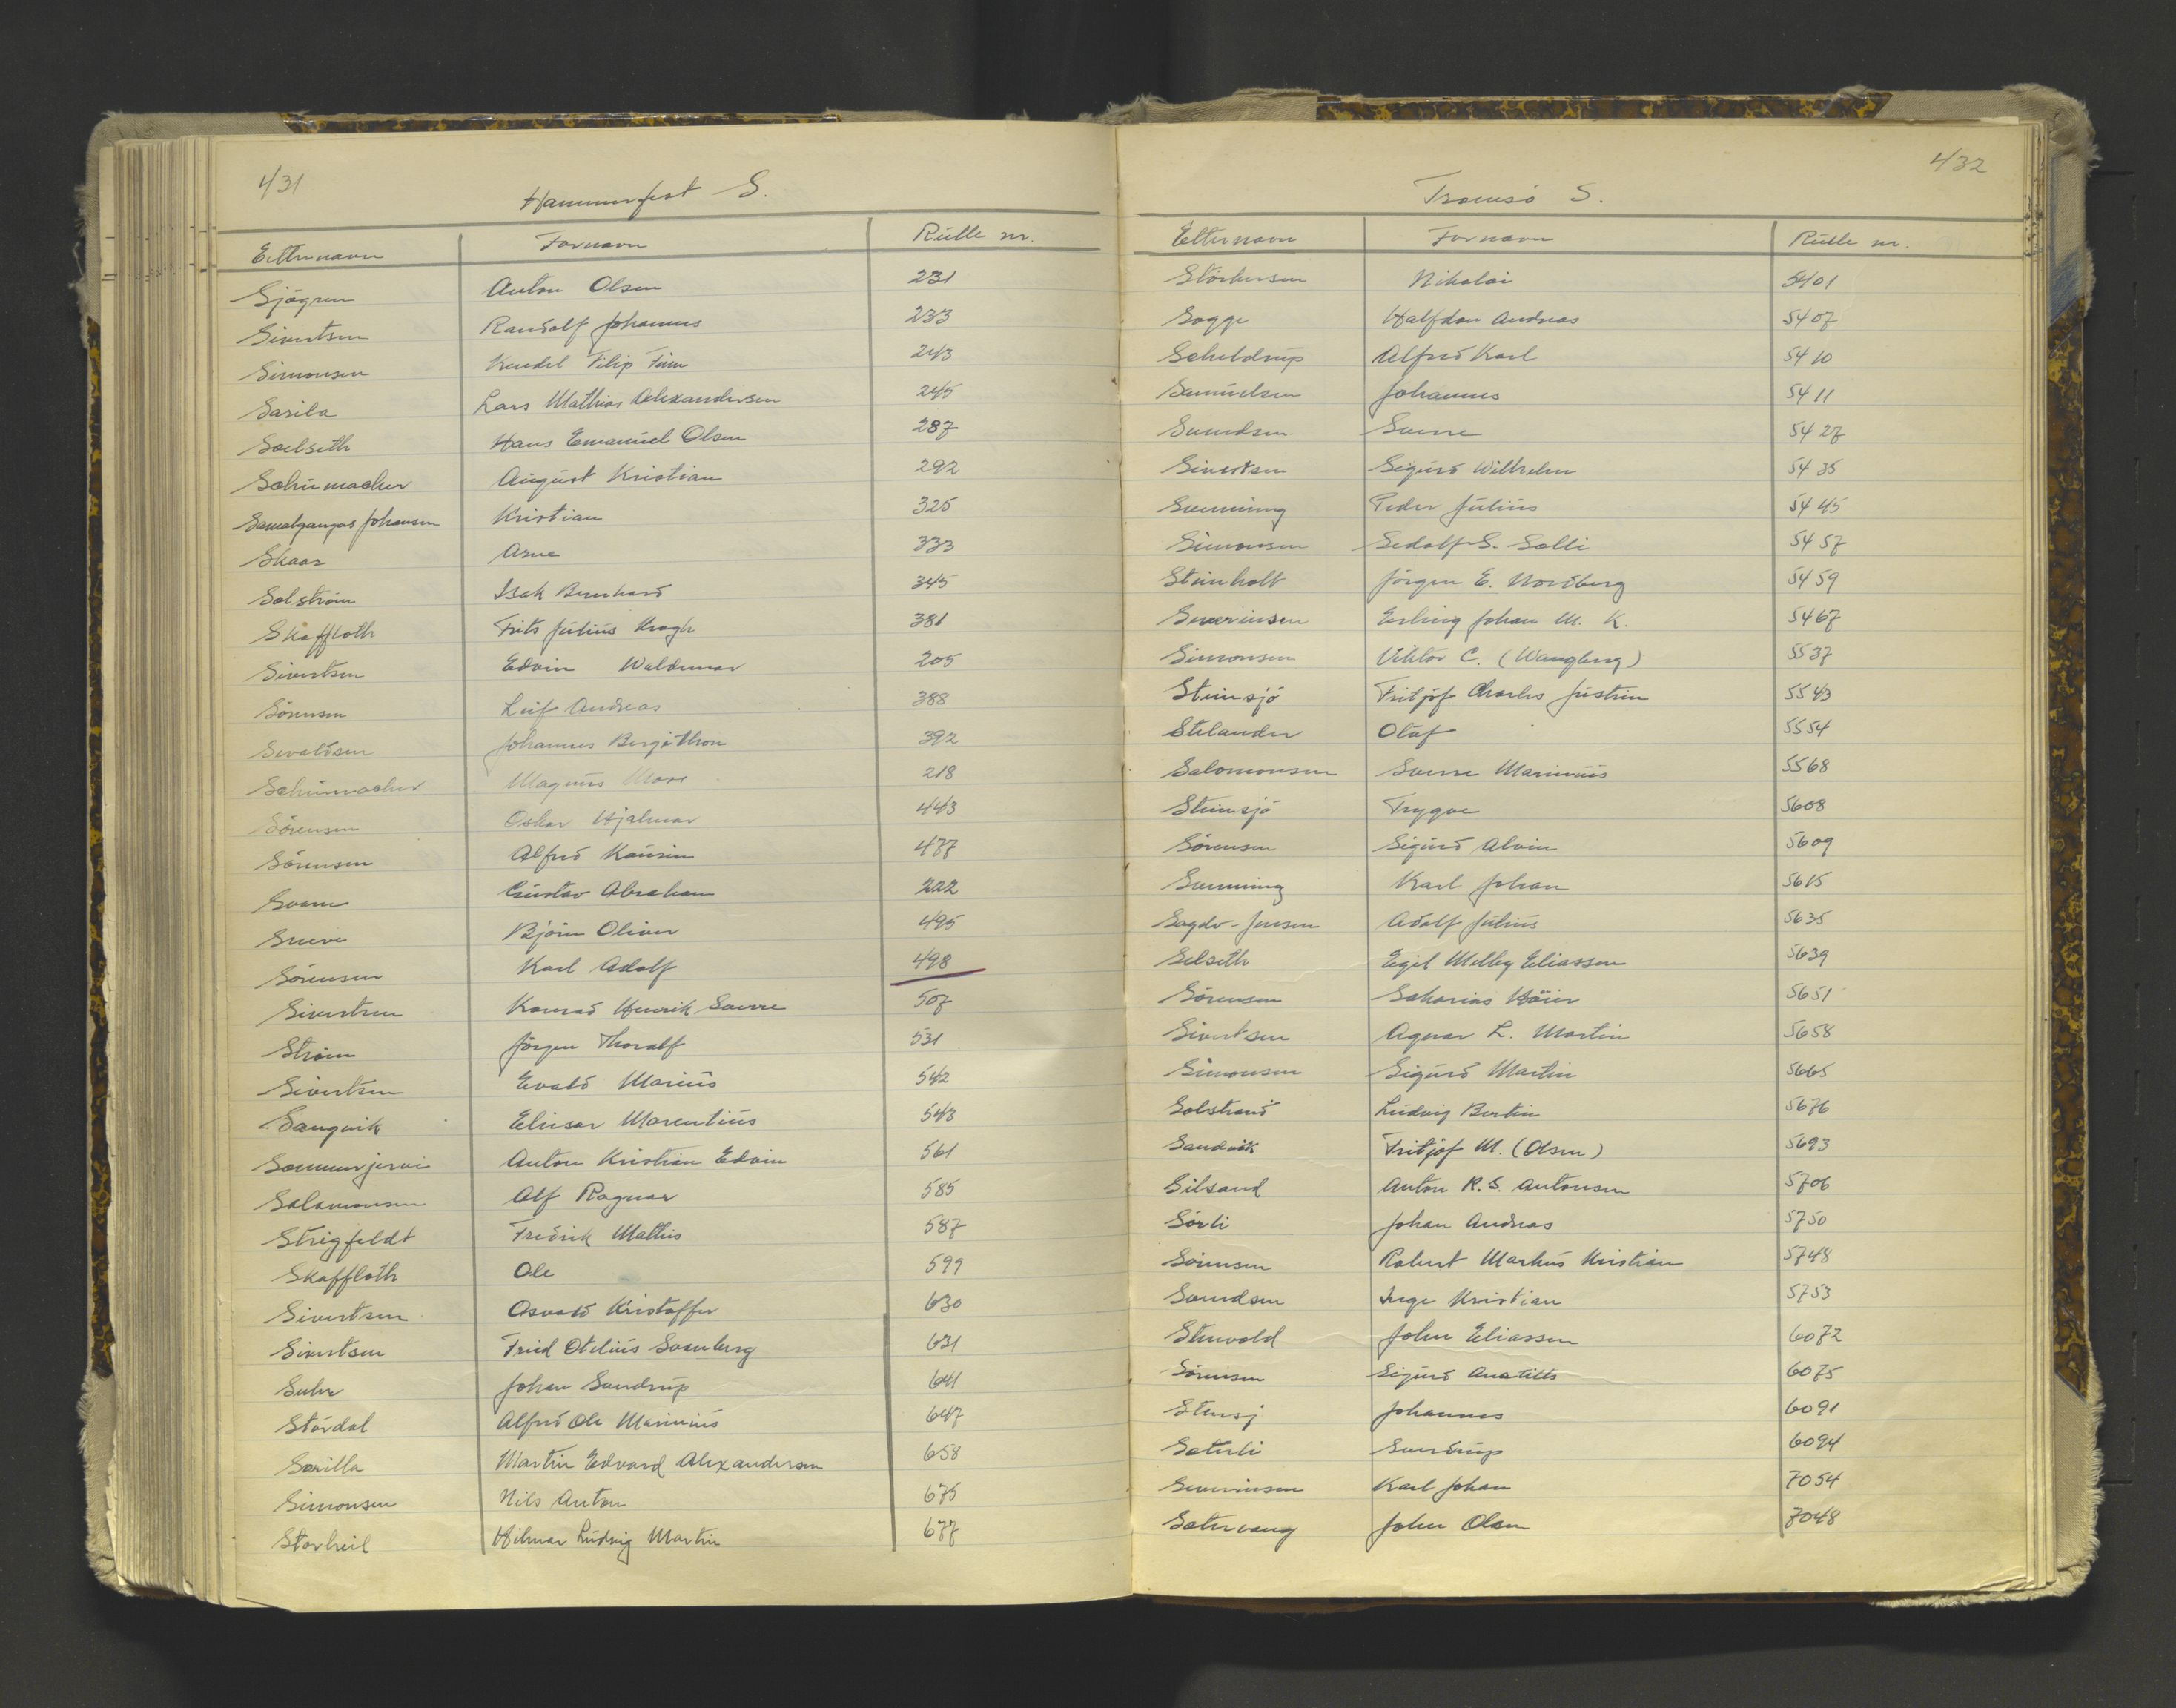 431
Hammerfest S.
Etternavn Fornavn Rulle nr.
Sjögren Anton Olsen 231
Sivertsen Randolf Johannes 233
Simonsen Kendel Filip Finn 243
Sarila Lars Mathias Alexandersen 245
Selseth Hans Emanuel Olsen 287
Schumacher August Kristian 292
Samalgangas Johansen Kristian 325
Skaar Arne 333
Solström Isak Bernhard 345
Skoffloth Frits Julius Krogh 381
Sivertsen Edvin Waldemar 205
Sörensen Leif Andreas 388
Sivaldsen Johannes Bergithon 392
Schumacher Magnus 218
Sörensen Oskar Hjalmar 443
Sörensen Alfred Kausin 477
Svane Gustav Abraham 222
Sneve Björn Oliver 495
Sörensen Karl Adolf 498
Sivertsen Konrad Henrik Sverre 507
Ström Jörgen Thoralf 531
Sivertsen Evald Marius 542
Sangvik Elisar Marentius 543
Sommerjervi Anton Kristian Edvin 561
Salamonsen Alf Ragnar 585
Stiegfeldt Fredrik Mathis 587
Skoffloth Ole 599
Sivertsen Osvald Kristoffer 630
Sivertsen Fried Otelius Svenberg 631
Suhr Johan Sundrup 641
Stördal Alfred Ole Marinius 647
Sarilla Martin Edvard Alexandersen 658
Simonsen Nils Anton 675
Storheil Hilmar Ludvig Martin 677
432
Tromsö S.
Etternavn Fornavn Rulle nr.
Störkersen Nikolai 5401
Sogge Halfdan Andreas 5407
Scheldrup Alfred Karl 5410
Samuelsen Johannes 5411
Svendsen Sverre 5427
Sivertsen Sigurd Wilhelm 5435
Svenning Peder Julius 5445
Simonsen Sedolf S. Solli 5457
Steinholt Jörgen E. Nordberg 5459
Severinsen Erling Johan M. K. 5467
Simonsen Viktor C. (Wangberg) 5537
Steinsjö Fritjof Charles Justin 5543
Stelander Olaf 5554
Salomonsen Sverre Marinius 5568
Steinsjö Trygve 5608
Sörensen Sigurd Alvin 5609
Svenning Karl Johan 5615
Sagelv-Jensen Adolf Julius 5635
Selseth Egil Melby Eliassen 5639
Sörensen Sakarias Höier 5651
Sivertsen Agnar L. Martin 5658
Simonsen Sigurd Martin 5665
Solstrand Ludvig Bertin 5676
Sandvik Fritjof M. (Olsen) 5693
Silsand Anton R. S. Antonsen 5706
Sörli Johan Andreas 5750
Sörensen Robert Markus Kristian 5748
Svendsen Inge Kristian 5753
Stenvold John Eliassen 6072
Sörensen Sigurd 6075
Stensj Johannes 6091
Saterli Sverdrup 6094
Severinsen Karl Johan 7054
Satervang John Olsen 7048